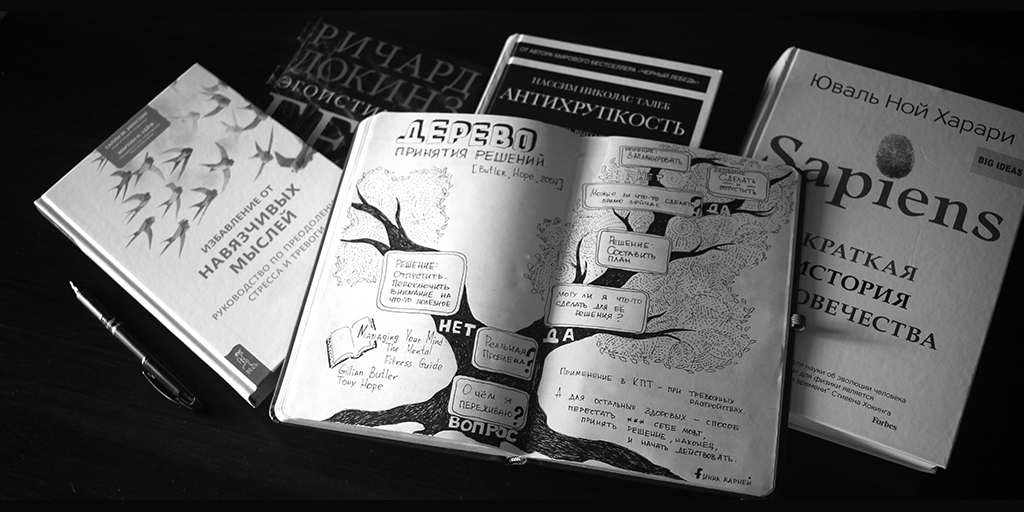 РИЧАРД
ДОКИНЗ
ЭГОИСТИ
ГЕ
ОТ АВТОРА МИРОВОГО БЕСТСЕЛЛЕРА «ЧЕРНЫЙ ЛЕБЕДЬ»
НАССИМ НИКОЛАС ТАЛЕБ
АНТИХРУПКОСТЬ
Юваль Ной Харари
BIG IDEAS
Sapiens
КРАТКАЯ
ИСТОРИЯ
ОВЕЧЕСТВА
науки об эволюции человека
для физики является
времени" Стивена Хокинга
Forbes
ИЗБАВЛЕНИЕ ОТ
НАВЯЗЧИВЫХ
МЫСЛЕЙ
РУКОВОДСТВО ПО ПРЕОДОЛЕН
СТРЕССА И ТРЕВОГИ
ДЕРЕВО
ПРИНЯТИЯ РЕШЕНИЙ
[Butler, Hope, 2007]
РЕШЕНИЕ:
ЗАПЛАНИРОВАТЬ
РЕШЕНИЕ:
СДЕЛАТЬ
И ОТПУСТИТЬ
МОЖНО ЛИ ЧТО-ТО СДЕЛАТЬ
ПРЯМО СЕЙЧАС ?
ДА
РЕШЕНИЕ:
СОСТАВИТЬ
ПЛАН
РЕШЕНИЕ:
ОТПУСТИТЬ.
ПЕРЕКЛЮЧИТЬ
ВНИМАНИЕ НА
ЧТО-ТО ПОЛЕЗНОЕ
МОГУ ЛИ Я ЧТО-ТО
СДЕЛАТЬ ДЛЯ ЕЁ
РЕШЕНИЯ ?
НЕТ
ДА
РЕАЛЬНАЯ
ПРОБЛЕМА ?
Managing Your Mind:
The Mental
Fitness Guide
Gillian Butler
Tony Hope
О ЧЁМ Я
ПЕРЕЖИВАЮ ?
ВОПРОС
ПРИМЕНЕНИЕ В КПТ - ПРИ ТРЕВОЖНЫХ
РАССТРОЙСТВАХ.
А ДЛЯ ОСТАЛЬНЫХ ЗДОРОВЫХ - СПОСОБ
ПЕРЕСТАТЬ *** СЕБЕ МОЗГ,
ПРИНЯТЬ РЕШЕНИЕ, НАКОНЕЦ,
И НАЧАТЬ ДЕЙСТВОВАТЬ.
f ИННА КАРНЕЙ